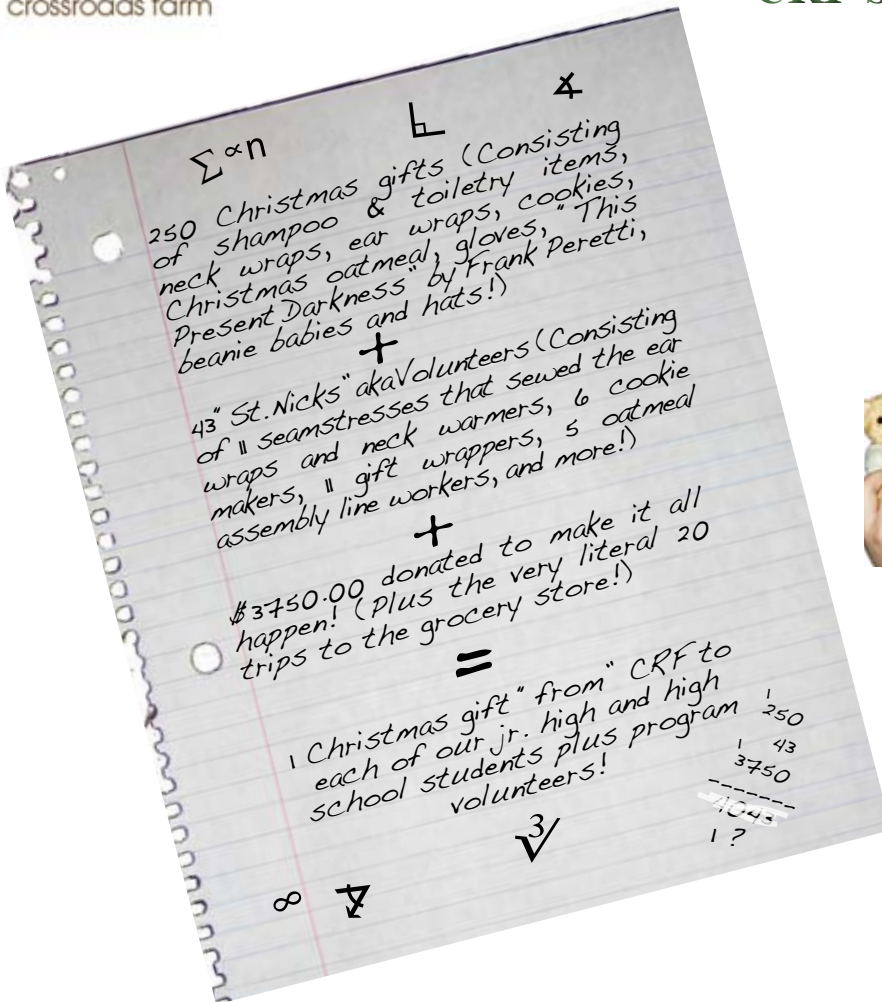 crossroads farm
CRF S
Σ ∝ n
250 Christmas gifts (Consisting
of shampoo & toiletry items,
neck wraps, ear wraps, cookies,
Christmas oatmeal, gloves, "This
Present Darkness" by Frank Peretti,
beanie babies and hats!)
+
43 "St. Nicks" aka Volunteers (Consisting
of 11 seamstresses that sewed the ear
wraps and neck warmers, 6 cookie
makers, 11 gift wrappers, 5 oatmeal
assembly line workers, and more!)
+
$3750.00 donated to make it all
happen! (Plus the very literal 20
trips to the grocery store!)
=
1 Christmas gift "from" CRF to
each of our jr. high and high
school students plus program
volunteers!
1
250
1 43
3750
-------
4043
1 ?
3√
∞